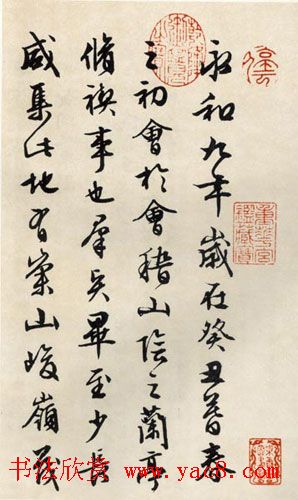 永和九年歲在癸丑暮春
之初會於會稽山陰之蘭亭
脩禊事也羣賢畢至少長
咸集此地有崇山峻嶺茂
重華宮鑑藏寶
书法欣赏 www.yac8.com